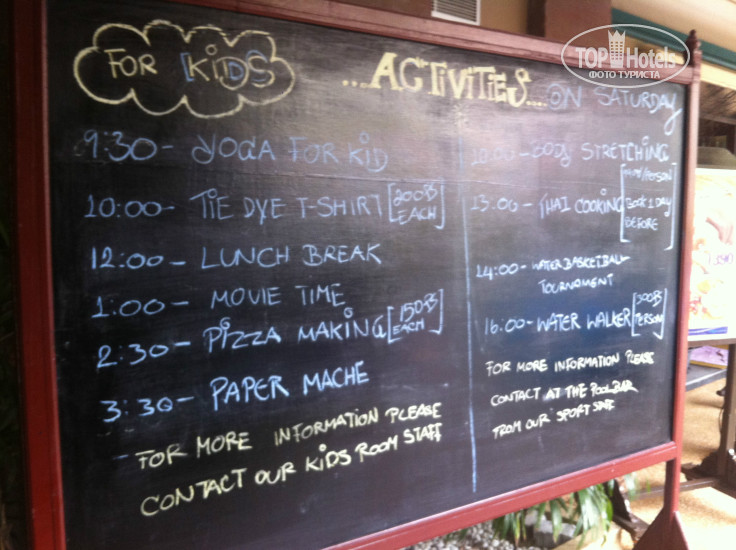 FOR KiDS
...ACTiViTiES.... ON SATURDAY
9:30 - YOGA FOR KiD
10:00 - TiE DYE T-SHIRT [200฿ EACH]
12:00 - LUNCH BREAK
1:00 - MOVIE TIME
2:30 - PiZZA MAKiNG [150฿ EACH]
3:30 - PAPER MACHE
- FOR MORE INFORMATION PLEASE
CONTACT OUR KiDS ROOM STAFF
10:00 - BODY STRETCHING
13:00 - THAI COOKING [ /PERSON
BOOK 1 DAY
BEFORE]
14:00 - WATER BASKETBALL
TOURNOMENT
16:00 - WATER WALKER [300฿
PERSON]
FOR MORE INFORMATION PLEASE
CONTACT AT THE POOLBAR
FROM OUR SPORT STAFF
TOP Hotels
ФОТО ТУРИСТА